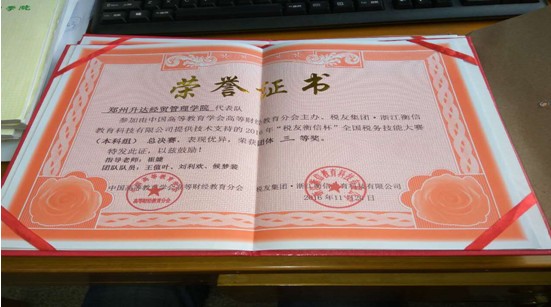 荣誉证书
郑州升达经贸管理学院 代表队
参加由中国高等教育学会高等财经教育分会主办、税友集团·浙江衡信
教育科技有限公司提供技术支持的2016年“税友衡信杯”全国税务技能大赛
（本科组）总决赛，表现优异，荣获团体 三 等奖。
特发此证，以兹鼓励！
指导老师：崔婕
团队队员：王值叶、刘利欢、侯梦裴
中国高等教育学会高等财经教育分会 税友集团·浙江衡信教育科技有限公司
高等财经教育分会
2016年11月20日
学院